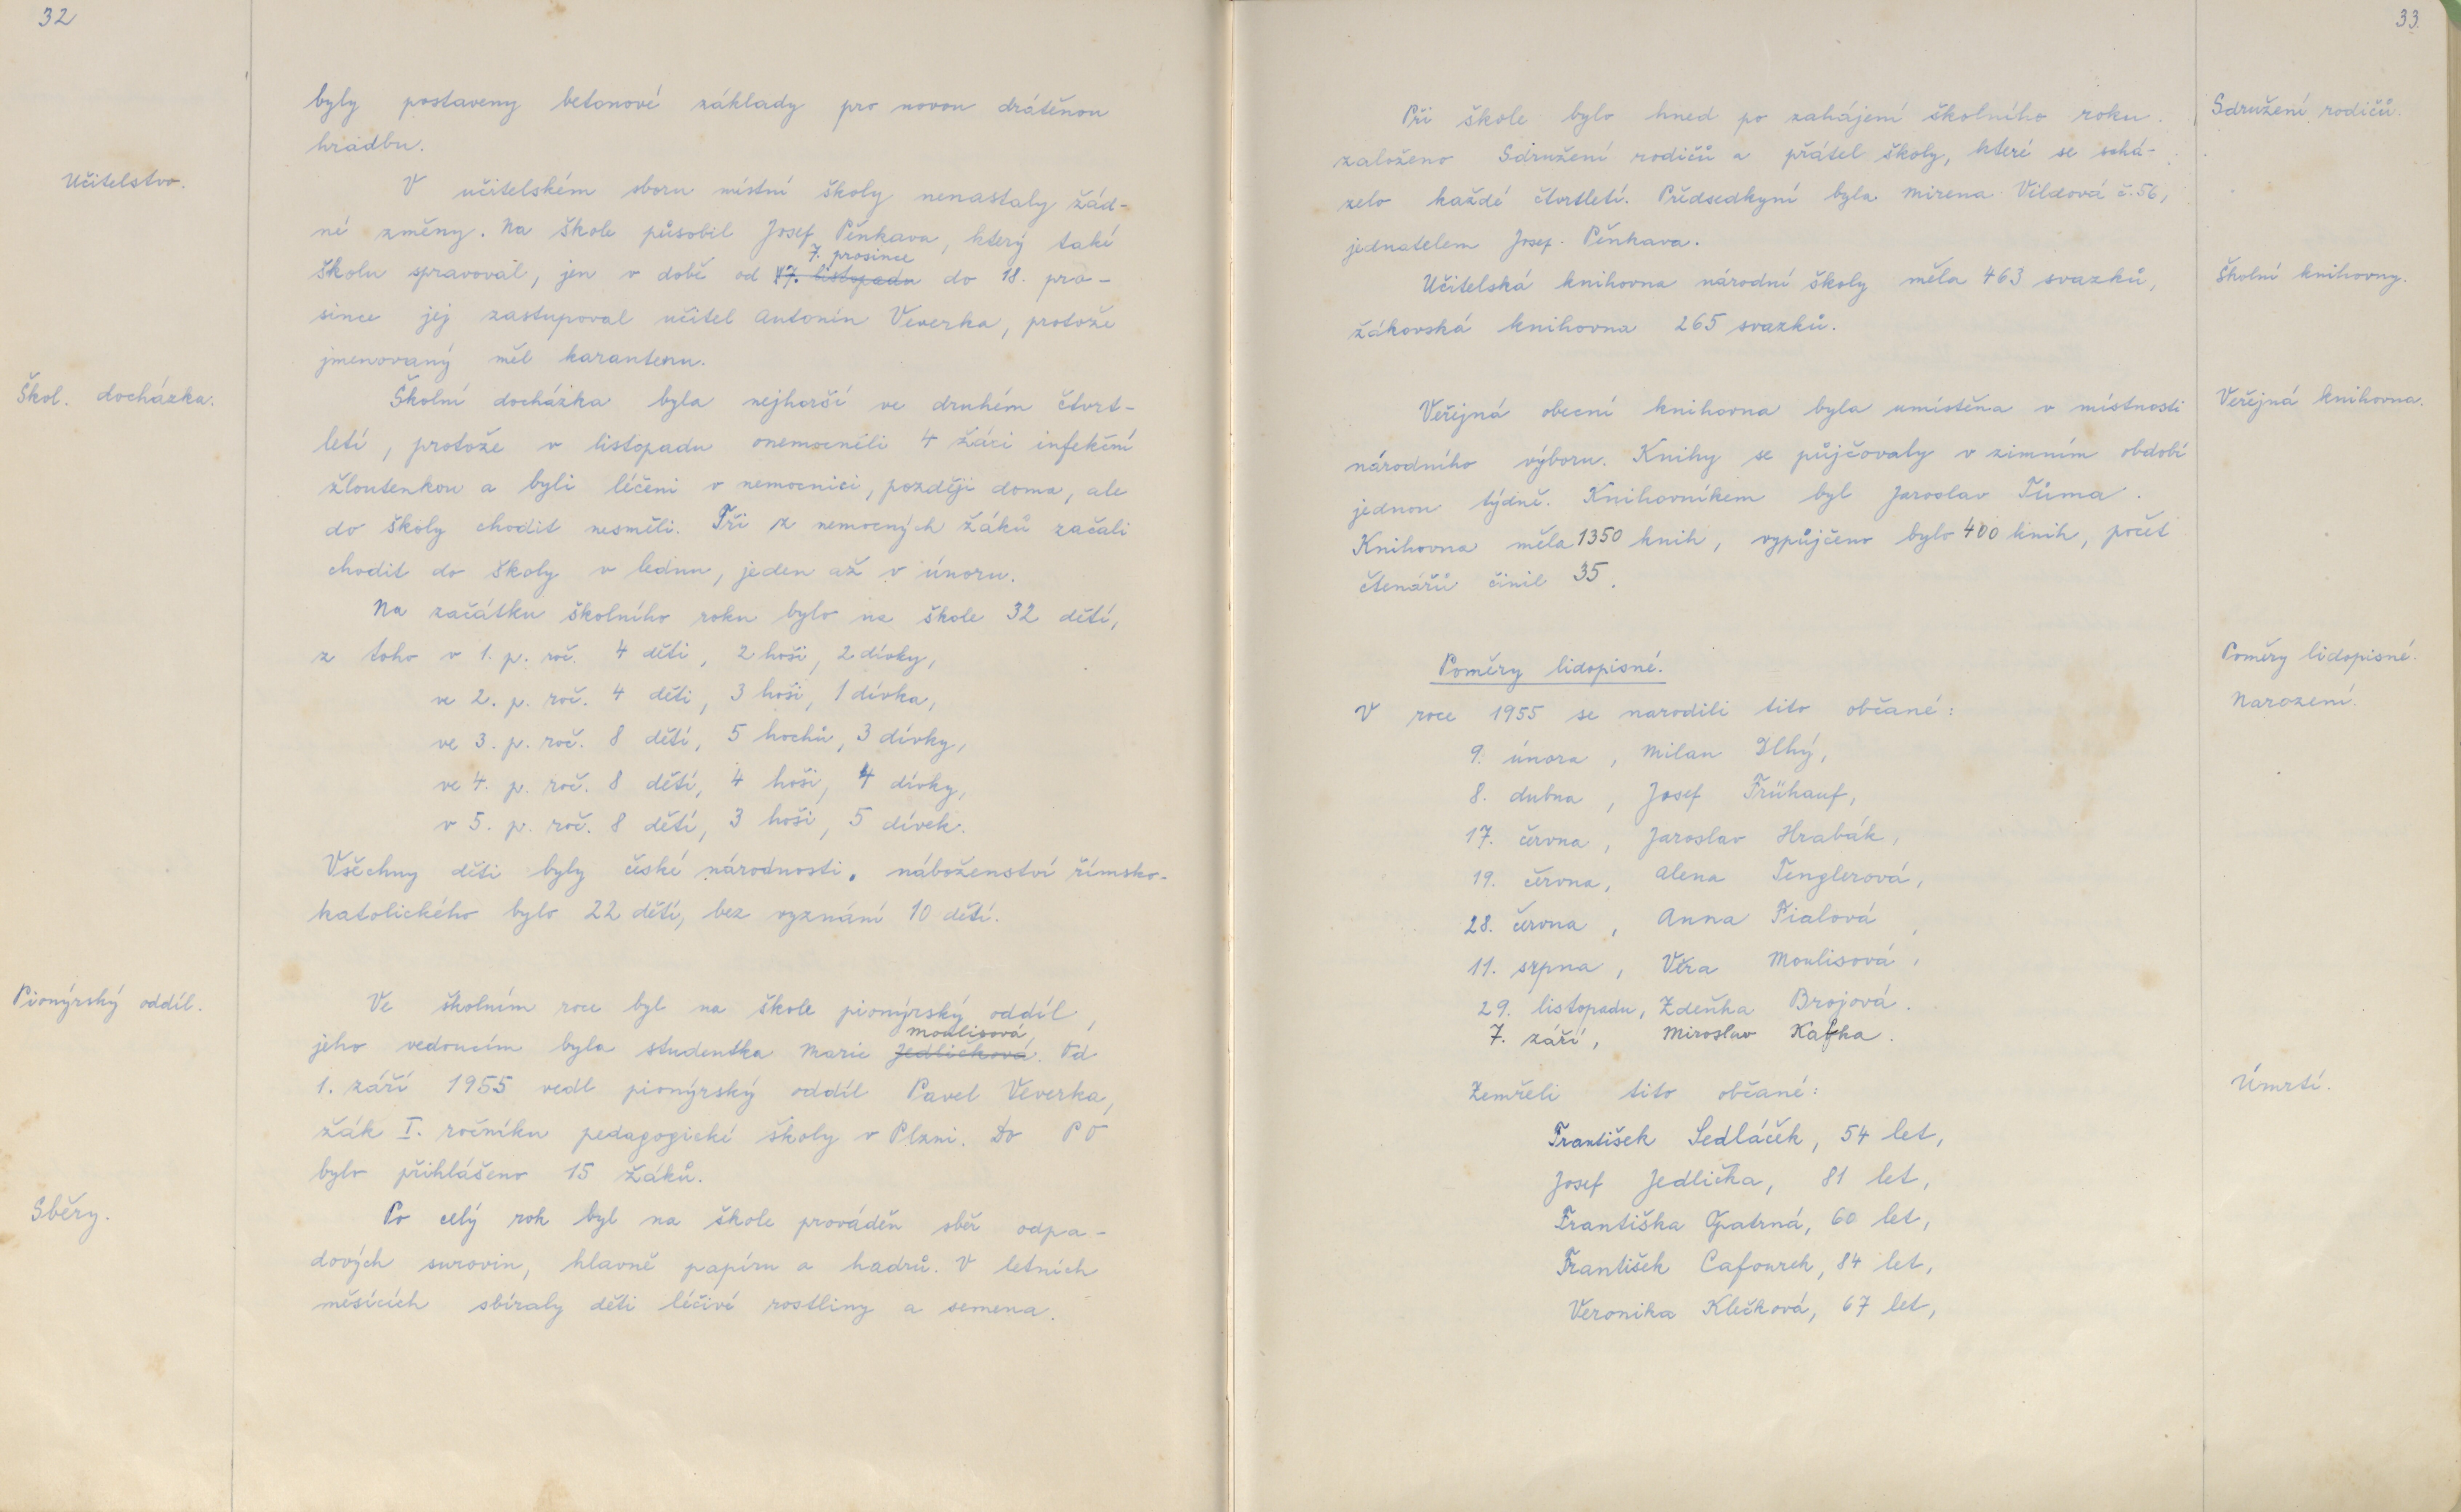 32
byly postaveny betonové základy pro novou drátěnou
hradbu.
Učitelstvo.
V učitelském sboru místní školy nenastaly žád-
né změny. Na škole působil Josef Pěnkava, který také
7. prosince
školu spravoval, jen v době od 17. listopadu do 18. pro-
since jej zastupoval učitel Antonín Veverka, protože
jmenovaný měl karantenu.
Škol. docházka.
Školní docházka byla nejhorší ve druhém čtvrt-
letí, protože v listopadu onemocněli 4 žáci infekční
žloutenkou a byli léčeni v nemocnici, později doma, ale
do školy chodit nesměli. Tři z nemocných žáků začali
chodit do školy v lednu, jeden až v únoru.
Na začátku školního roku bylo na škole 32 dětí,
z toho v 1. p. roč. 4 děti, 2 hoši, 2 dívky,
ve 2. p. roč. 4 děti, 3 hoši, 1 dívka,
ve 3. p. roč. 8 dětí, 5 hochů, 3 dívky,
ve 4. p. roč. 8 dětí, 4 hoši, 4 dívky,
v 5. p. roč. 8 dětí, 3 hoši, 5 dívek.
Všechny děti byly české národnosti, náboženství římsko-
katolického bylo 22 dětí, bez vyznání 10 dětí.
Pionýrský oddíl.
Ve školním roce byl na škole pionýrský oddíl,
Moulisová
jeho vedoucím byla studentka Marie Jedličková. Od
1. září 1955 vedl pionýrský oddíl Pavel Veverka,
žák I. ročníku pedagogické školy v Plzni. Do PO
bylo přihlášeno 15 žáků.
Sběry.
Po celý rok byl na škole prováděn sběr odpa-
dových surovin, hlavně papíru a hadrů. V letních
měsících sbíraly děti léčivé rostliny a semena.
33.
Při škole bylo hned po zahájení školního roku
Sdružení rodičů.
založeno Sdružení rodičů a přátel školy, které se schá-
zelo každé čtvrtletí. Předsedkyní byla Mirena Vildová č. 56,
jednatelem Josef Pěnkava.
Učitelská knihovna národní školy měla 463 svazků,
Školní knihovny.
žákovská knihovna 265 svazků.
Veřejná obecní knihovna byla umístěna v místnosti
Veřejná knihovna.
národního výboru. Knihy se půjčovaly v zimním období
jednou týdně. Knihovníkem byl Jaroslav Tůma.
Knihovna měla 1350 knih, vypůjčeno bylo 400 knih, počet
čtenářů činil 35.
Poměry lidopisné.
Poměry lidopisné.
Narození.
V roce 1955 se narodili tito občané:
9. února, Milan Dlhý,
8. dubna, Josef Frühauf,
17. června, Jaroslav Hrabák,
19. června, Alena Tenglerová,
28. června, Anna Fialová,
11. srpna, Věra Moulisová,
29. listopadu, Zdeňka Brojová.
7. září, Miroslav Kafka.
Úmrtí.
Zemřeli tito občané:
František Sedláček, 54 let,
Josef Jedlička, 81 let,
Františka Opatrná, 60 let,
František Cafourek, 84 let,
Veronika Klečková, 67 let,